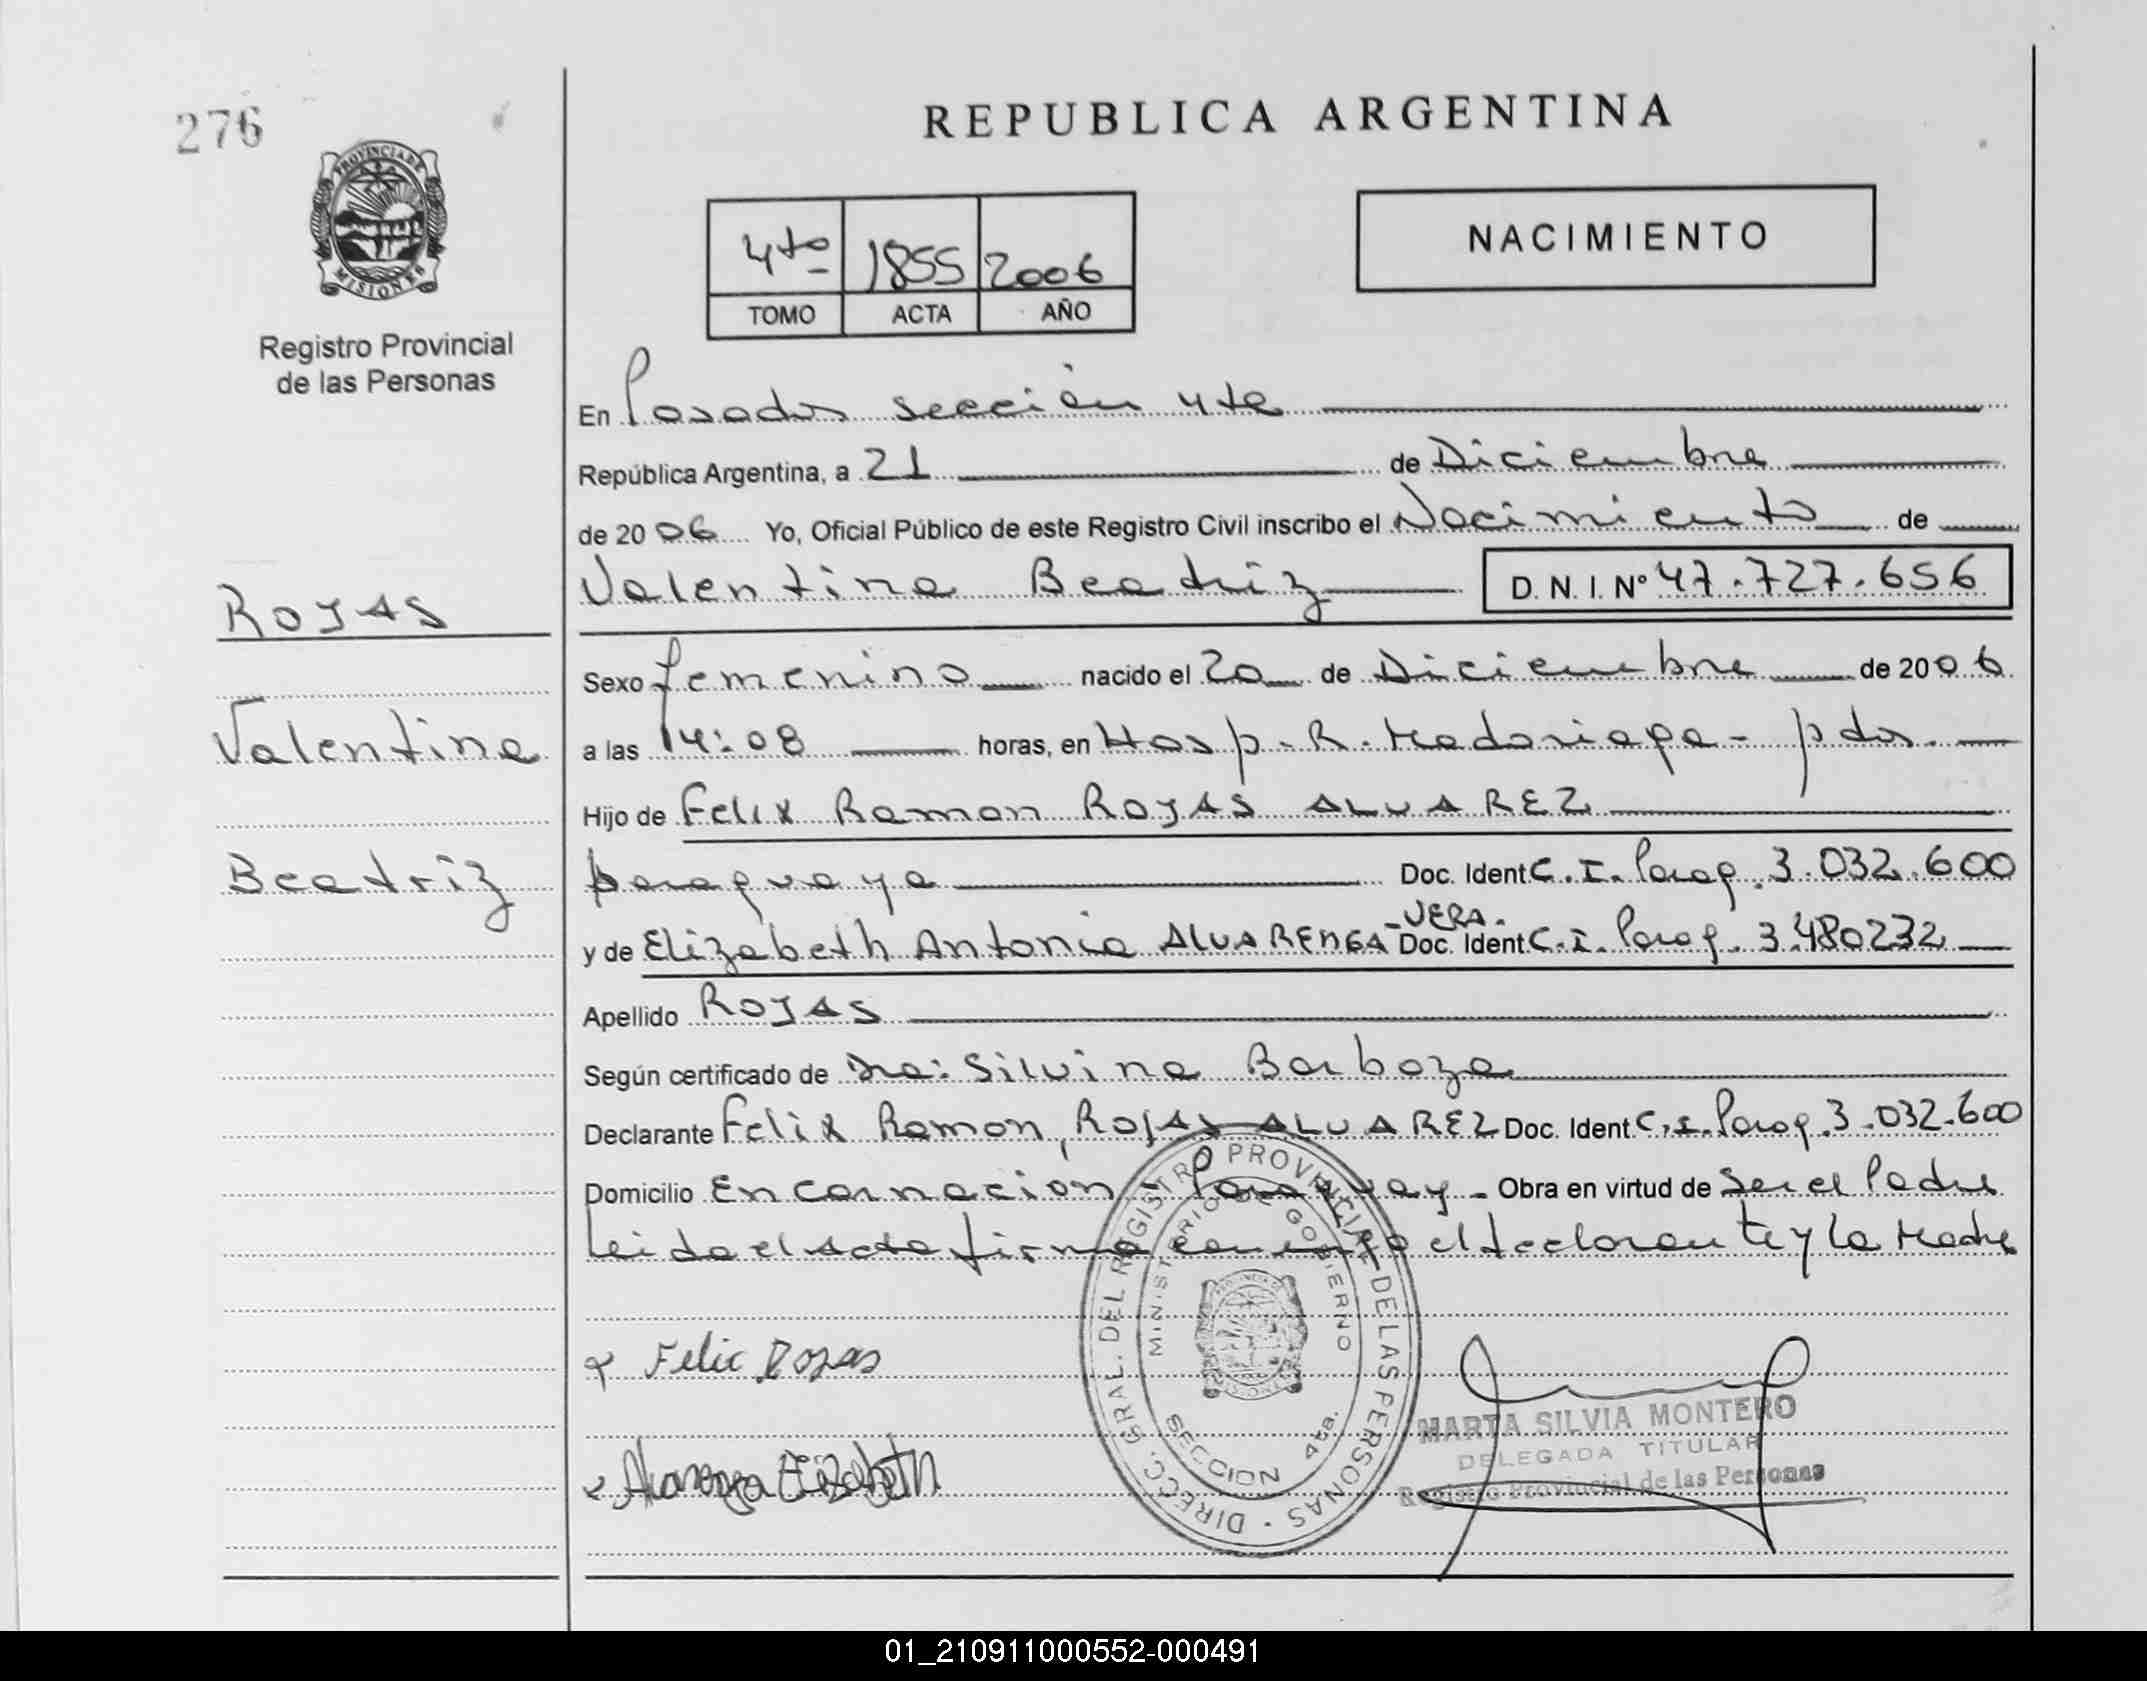 276
PROVINCIA DE
MISIONES
Registro Provincial
de las Personas
REPUBLICA ARGENTINA
4to 1855 2006
TOMO ACTA AÑO
NACIMIENTO
En Posadas sección 4ta
República Argentina, a 21 de Diciembre
de 2006 Yo, Oficial Público de este Registro Civil inscribo el Nacimiento de
Valentina Beatriz D. N. I. Nº 47.727.656
ROJAS
Valentina
Beatriz
Sexo femenino nacido el 20 de Diciembre de 2006
a las 14:08 horas, en Hosp. R. Madariaga - pdas.
Hijo de Felix Ramon ROJAS ALVAREZ
paraguaya Doc. Ident C. I. Parag. 3.032.600
y de Elizabeth Antonia ALVARENGA - VERA. Doc. Ident C. I. Parag. 3.480232
Apellido ROJAS
Según certificado de Dra: Silvina Barboza
Declarante Felix Ramon, ROJAS ALVAREZ Doc. Ident C. I. Parag. 3.032.600
Domicilio Encarnacion - Paraguay - Obra en virtud de Ser el Padre
Leida el Acta firma conmigo el declarante y la Madre
Felix Rojas
Alvarenga Elizabeth
DIRECC. GRAL. DEL REGISTRO PROVINCIAL DE LAS PERSONAS
MINISTERIO DE GOBIERNO
SECCION 4ta.
MARTA SILVIA MONTERO
DELEGADA TITULAR
Registro Provincial de las Personas
01_210911000552-000491